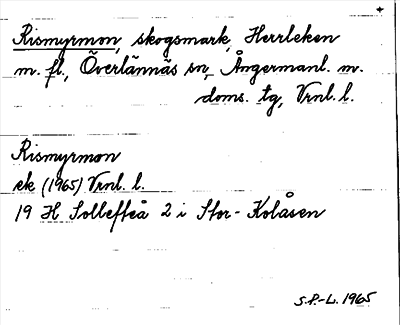 Rismyrmon, skogsmark, Herrleken
m. fl., Överlännäs sn, Ångermanl. m.
doms. tg, Vrnl. l.
Rismyrmon
ek (1965) Vrnl. l.
19 H Sollefteå 2 i Stor-Kolåsen
S.P.-L. 1965